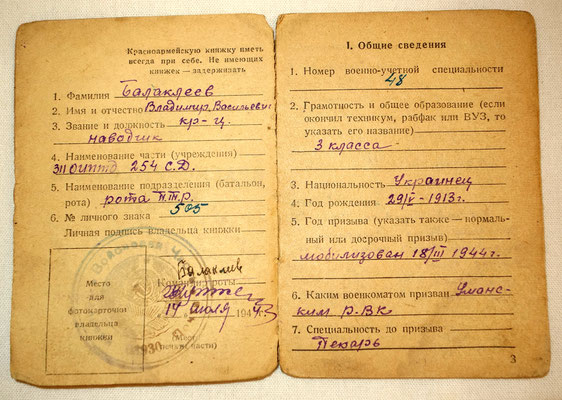 Красноармейскую книжку иметь
всегда при себе. Не имеющих
книжек — задерживать
1. Фамилия Балаклеев
2. Имя и отчество Владимир Васильевич
3. Звание и должность кр-ц
наводчик
4. Наименование части (учреждения)
311 ОИПТД 254 С.Д.
5. Наименование подразделения (батальон,
рота) рота П.Т.Р.
6. № личного знака 505
Личная подпись владельца книжки
Балаклеев
Место
для
фотокарточки
владельца
книжки
Командир роты
14 июля 194
(Место
печати части)
I. Общие сведения
1. Номер военно-учетной специальности
48
2. Грамотность и общее образование (если
окончил техникум, рабфак или ВУЗ, то
указать его название)
3 класса
3. Национальность Украинец
4. Год рождения 29/V-1913г.
5. Год призыва (указать также — нормаль-
ный или досрочный призыв)
мобилизован 18/III 1944г.
6. Каким военкоматом призван Уманс-
ким Р.В.К
7. Специальность до призыва
Пекарь
3